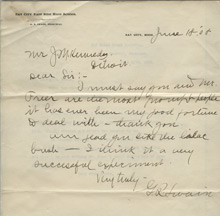 BAY CITY, MICH. June 18 '08
Mr J M Kennedy
Detroit
Dear Sir:-
I must say you and Mr.
Freer are about the most people
it has ever been my good fortune
to deal with - thank you.
am glad you like the
brush - I think it a very
successful experiment.
Very truly -
G.R. Swain